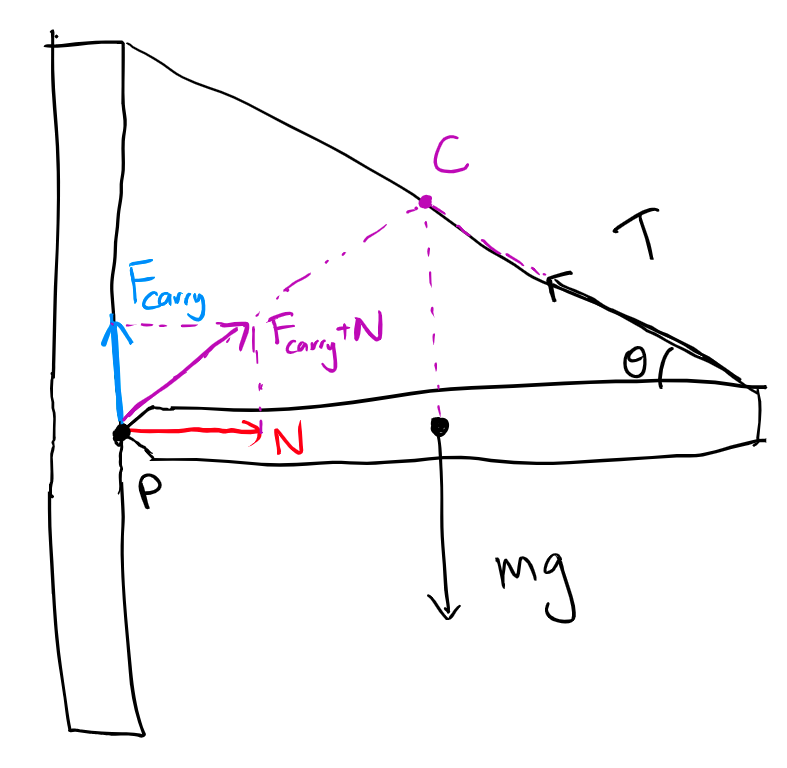 C
T
Fcarry
Fcarry+N
θ
N
P
mg